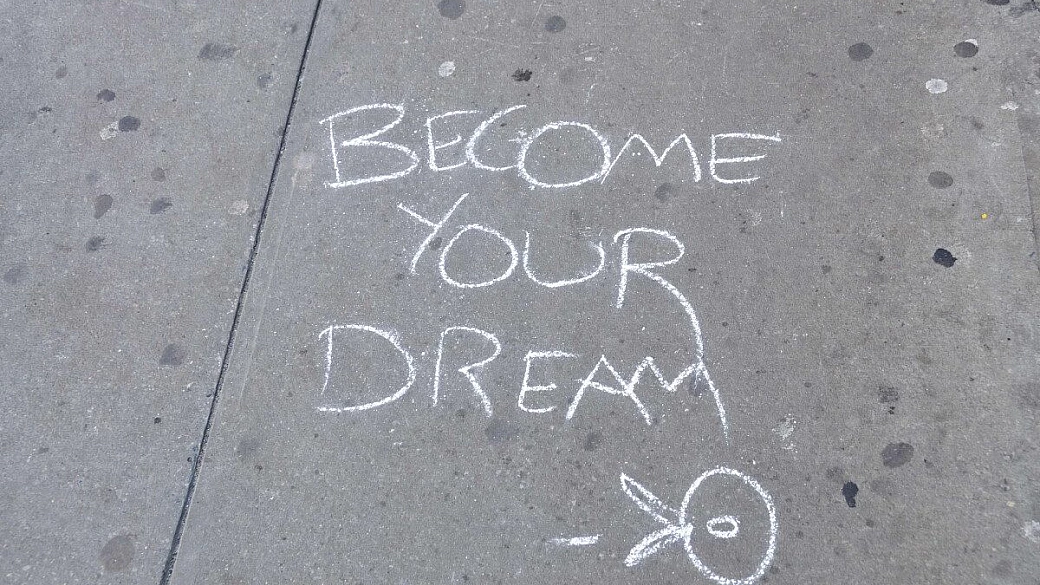 BECOME
YOUR
DREAM